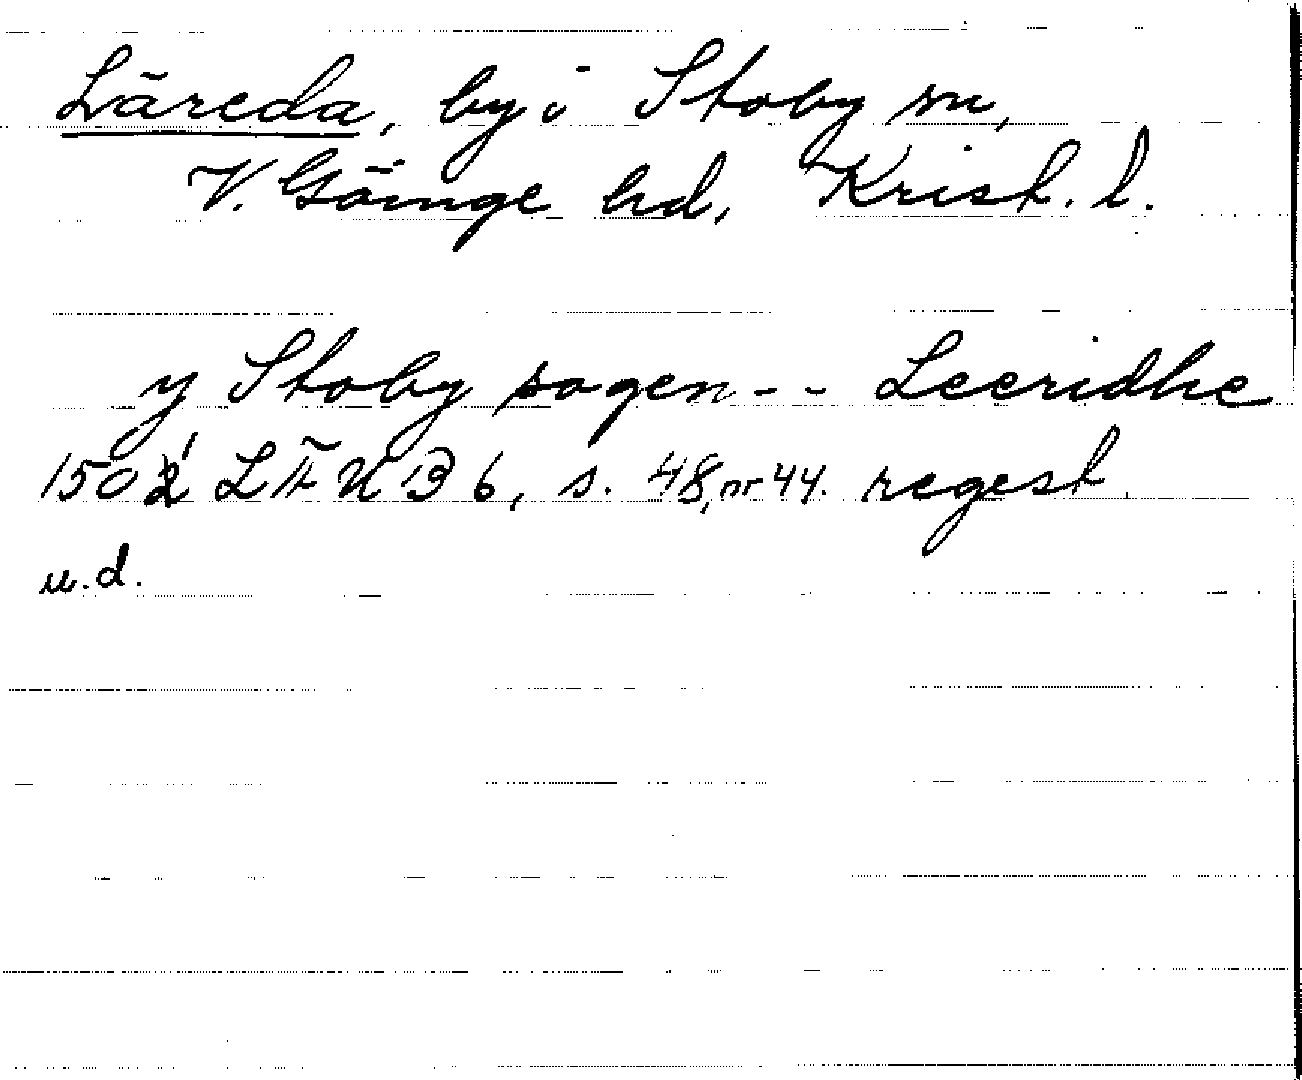 Läreda, by i Stoby sn,
V. Göinge hd, Krist. l.
y Stoby sogen - - Leeridhe
1502 LÄUB 6, s. 48, nr 44. regest.
u.d.